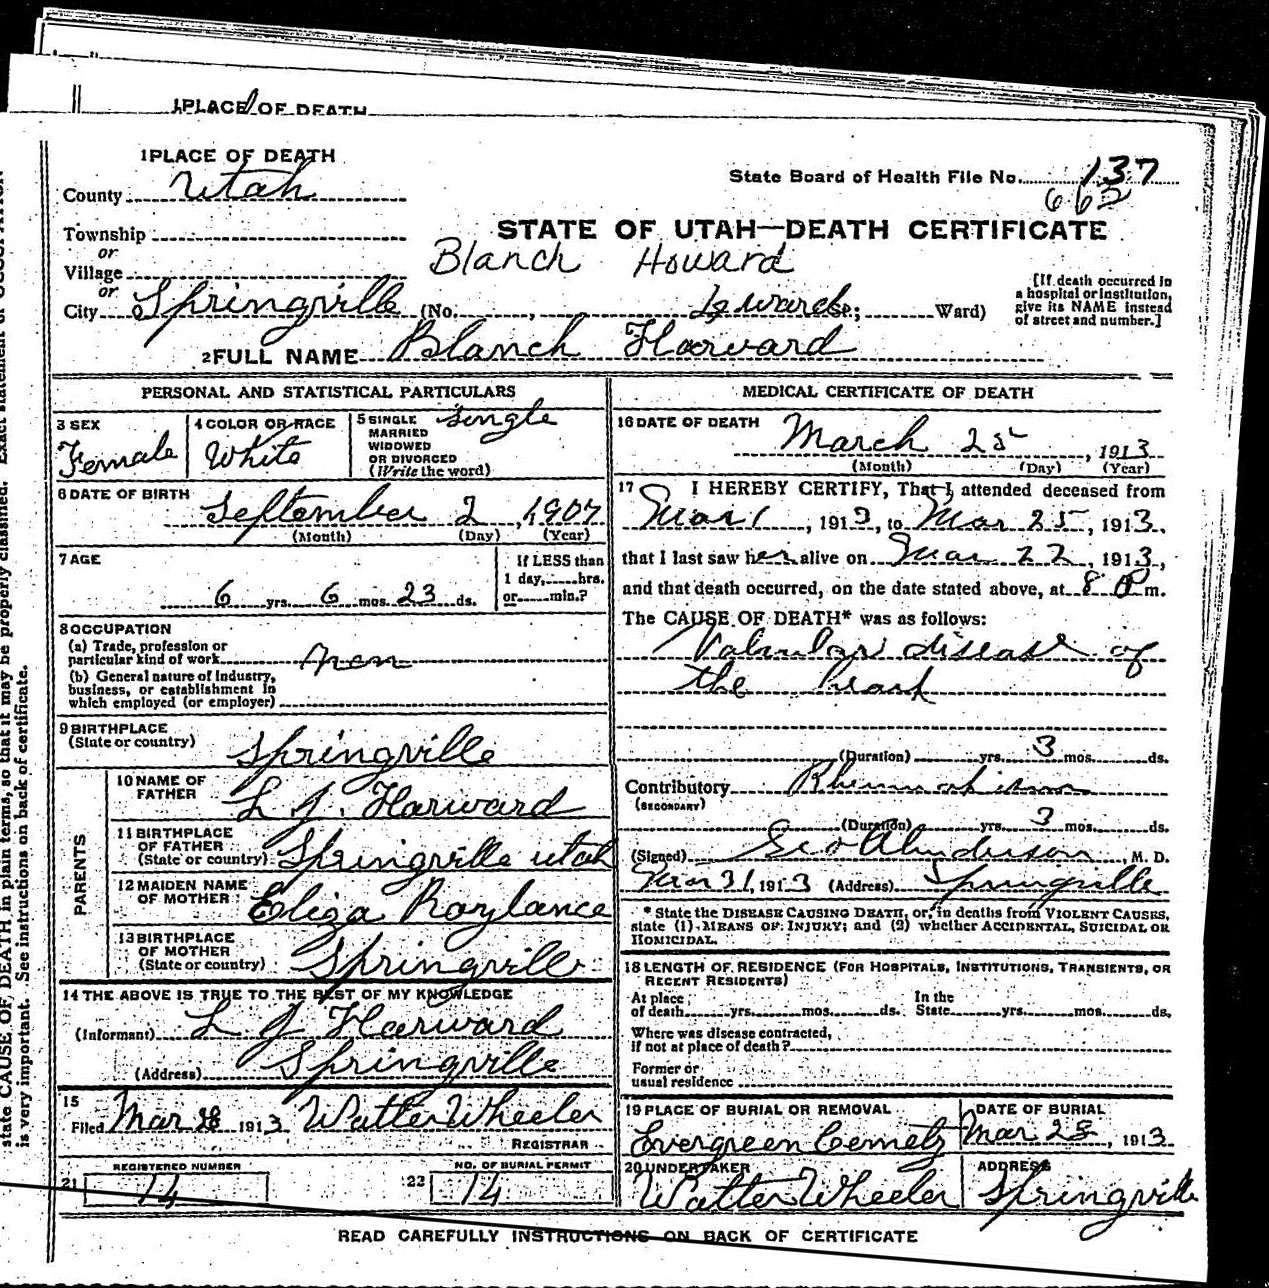 1PLACE OF DEATH
1PLACE OF DEATH
County Utah
State Board of Health File No. 137
662
Township
STATE OF UTAH—DEATH CERTIFICATE
or
Village
Blanch Howard
or
City Springville (No. , St; Ward)
[If death occurred in a hospital or institution, give its NAME instead of street and number.]
2FULL NAME Blanch Harward
PERSONAL AND STATISTICAL PARTICULARS
3 SEX
Female
4 COLOR OR RACE
White
5 SINGLE
MARRIED
WIDOWED
OR DIVORCED
(Write the word)
single
6 DATE OF BIRTH
September 2, 1907
(Month) (Day) (Year)
7 AGE
6 yrs. 6 mos. 23 ds.
If LESS than
1 day, hrs.
or min.?
8 OCCUPATION
(a) Trade, profession or
particular kind of work
(b) General nature of industry,
business, or establishment in
which employed (or employer)
9 BIRTHPLACE
(State or country)
Springville
PARENTS
10 NAME OF
FATHER
L J. Harward
11 BIRTHPLACE
OF FATHER
(State or country) Springville utah
12 MAIDEN NAME
OF MOTHER
Eliza Roylance
13 BIRTHPLACE
OF MOTHER
(State or country)
Springville
14 THE ABOVE IS TRUE TO THE BEST OF MY KNOWLEDGE
(Informant) L J Harward
(Address) Springville
15
Filed Mar 28 1913 Walter Wheeler
REGISTRAR
REGISTERED NUMBER
21 14
NO. OF BURIAL PERMIT
22 14
MEDICAL CERTIFICATE OF DEATH
16 DATE OF DEATH
March 25, 1913
(Month) (Day) (Year)
17 I HEREBY CERTIFY, That I attended deceased from
Mar 1, 1913, to Mar 25, 1913,
that I last saw her alive on Mar 22, 1913,
and that death occurred, on the date stated above, at 8 P m.
The CAUSE OF DEATH* was as follows:
Valvular disease of
the heart
(Duration) yrs. 3 mos. ds.
Contributory Rheumatism
(SECONDARY)
(Duration) yrs. 3 mos. ds.
(Signed) Geo Anderson, M. D.
Mar 31, 1913 (Address) Springville
* State the DISEASE CAUSING DEATH, or, in deaths from VIOLENT CAUSES,
state (1) MEANS OF INJURY; and (2) whether ACCIDENTAL, SUICIDAL OR
HOMICIDAL.
18 LENGTH OF RESIDENCE (FOR HOSPITALS, INSTITUTIONS, TRANSIENTS, OR
RECENT RESIDENTS)
At place
of death yrs. mos. ds.
In the
State yrs. mos. ds.
Where was disease contracted,
if not at place of death?
Former or
usual residence
19 PLACE OF BURIAL OR REMOVAL
Evergreen
DATE OF BURIAL
Mar 28, 1913
20 UNDERTAKER
Walter Wheeler
ADDRESS
Springville
READ CAREFULLY INSTRUCTIONS ON BACK OF CERTIFICATE
state CAUSE OF DEATH in plain terms, so that it may be properly classified. Exact statement of OCCUPATION
is very important. See instructions on back of certificate.